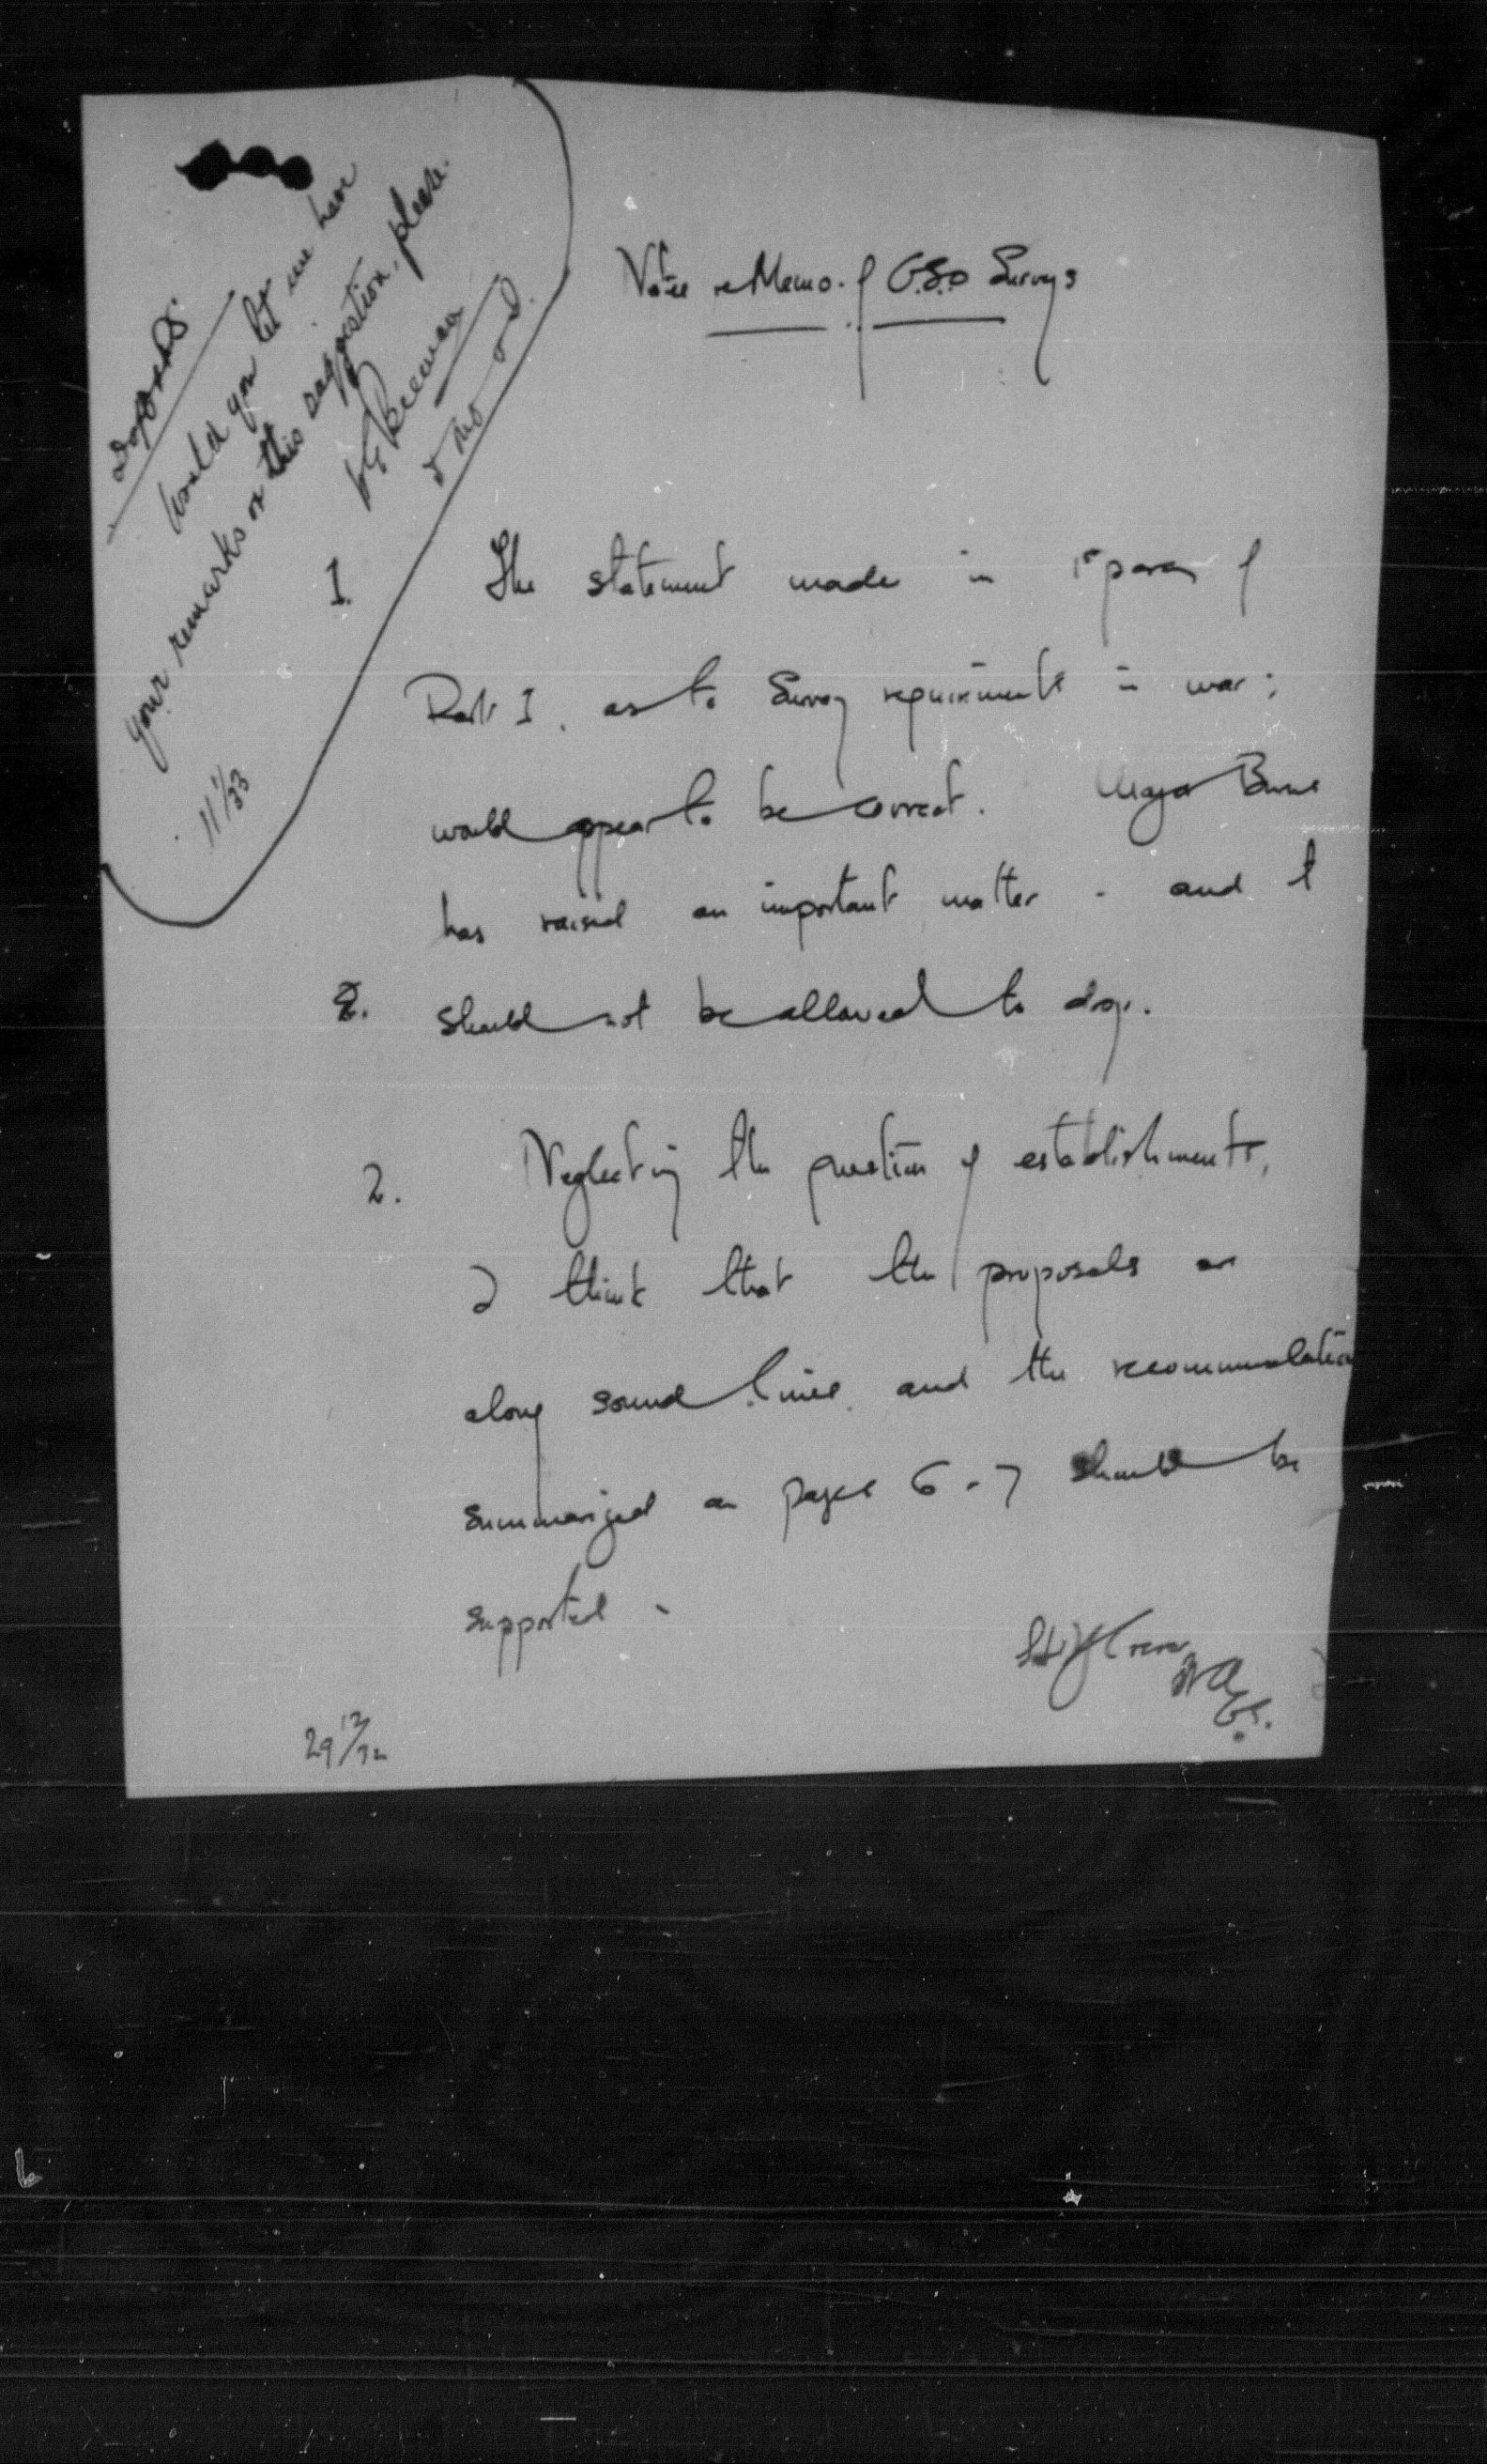 Would you let me have
your remarks on this suggestion, please.
D M O &
11/1/33
Notes re Memo. of G.S.O Surveys
1. The statement made in 1st para of
Part I, as to Survey requirements in war;
would appear to be correct. Major Burns
has raised an important matter - and it
should not be allowed to drop.
2. Neglecting the question of establishments,
I think that the proposals are
along sound lines, and the recommendation
summarized on pages 6-7 should be
supported.
29/12/32